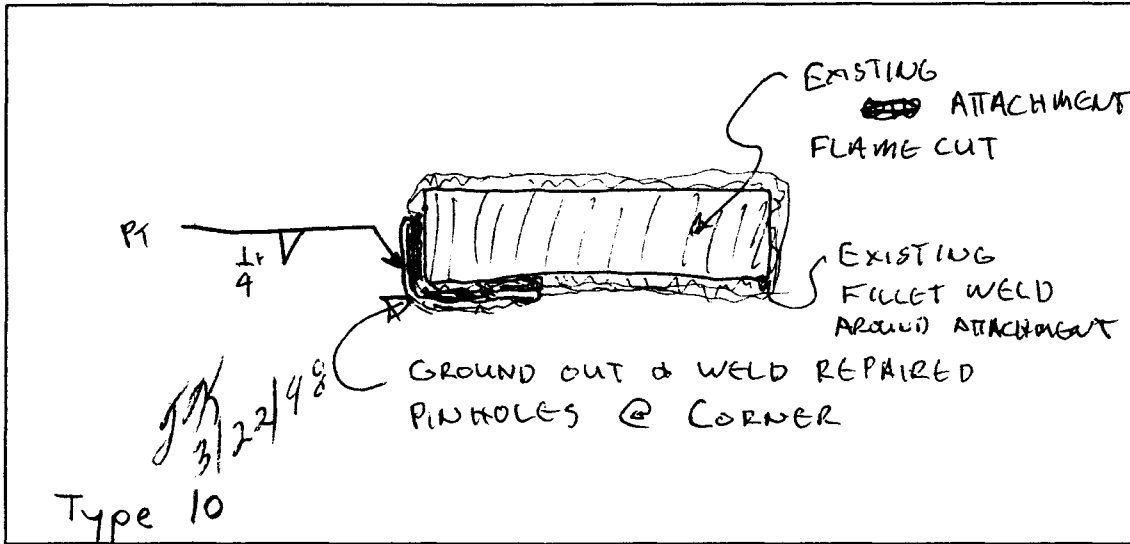 EXISTING
ATTACHMENT
FLAME CUT
PT
1/4
EXISTING
FILLET WELD
AROUND ATTACHMENT
GROUND OUT & WELD REPAIRED
PINHOLES @ CORNER
3/22/98
Type 10